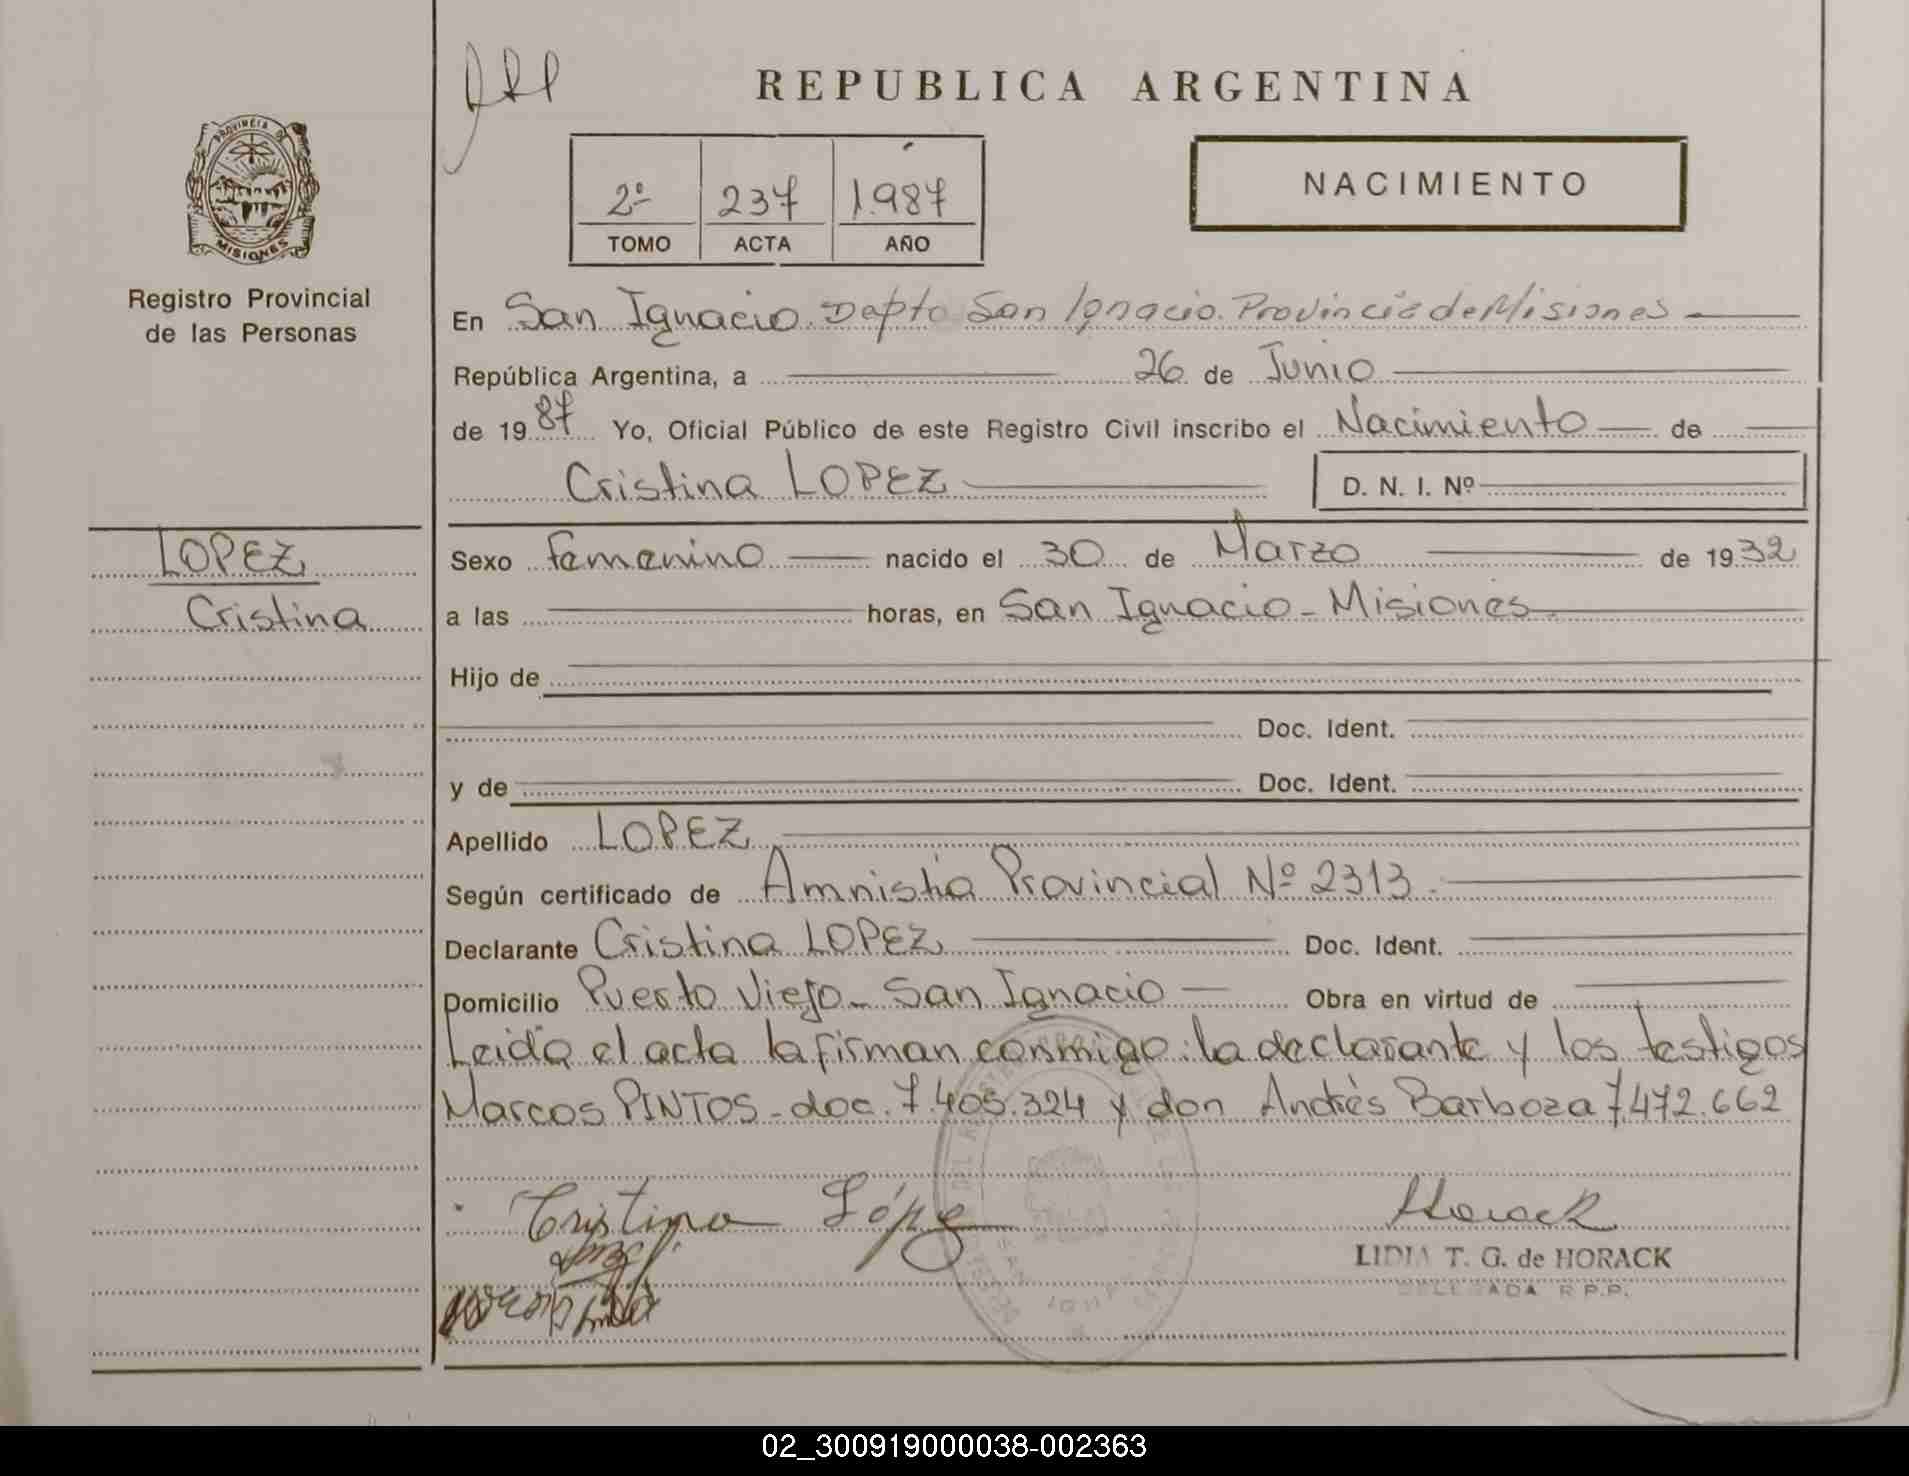 REPUBLICA ARGENTINA
PROVINCIA DE
MISIONES
Registro Provincial
de las Personas
2º 237 1.987
TOMO ACTA AÑO
NACIMIENTO
En San Ignacio. Depto San Ignacio. Provincia de Misiones
República Argentina, a 26 de Junio
de 1987 Yo, Oficial Público de este Registro Civil inscribo el Nacimiento de
Cristina LOPEZ D. N. I. Nº
LOPEZ
Cristina
Sexo femenino nacido el 30 de Marzo de 1932
a las horas, en San Ignacio - Misiones.
Hijo de
Doc. Ident.
y de Doc. Ident.
Apellido LOPEZ
Según certificado de Amnistía Provincial Nº 2313.
Declarante Cristina LOPEZ Doc. Ident.
Domicilio Puerto Viejo - San Ignacio Obra en virtud de
Leida el acta la firman conmigo: la declarante y los testigos
Marcos PINTOS - doc. 7.405.324 y don Andrés Barboza 7.472.662
Cristina López
Horack
LIDIA T. G. de HORACK
DELEGADA R.P.P.
02_300919000038-002363